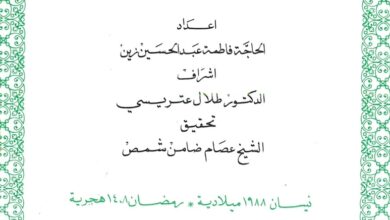 اعداد
الحاجّة فاطمة عبد الحسين زين
اشراف
الدكتور طلال عتريسي
تحقيق
الشيخ عصام ضامن شمص
نيسان ١٩٨٨ ميلادية * رمضان ١٤٠٨ هجرية